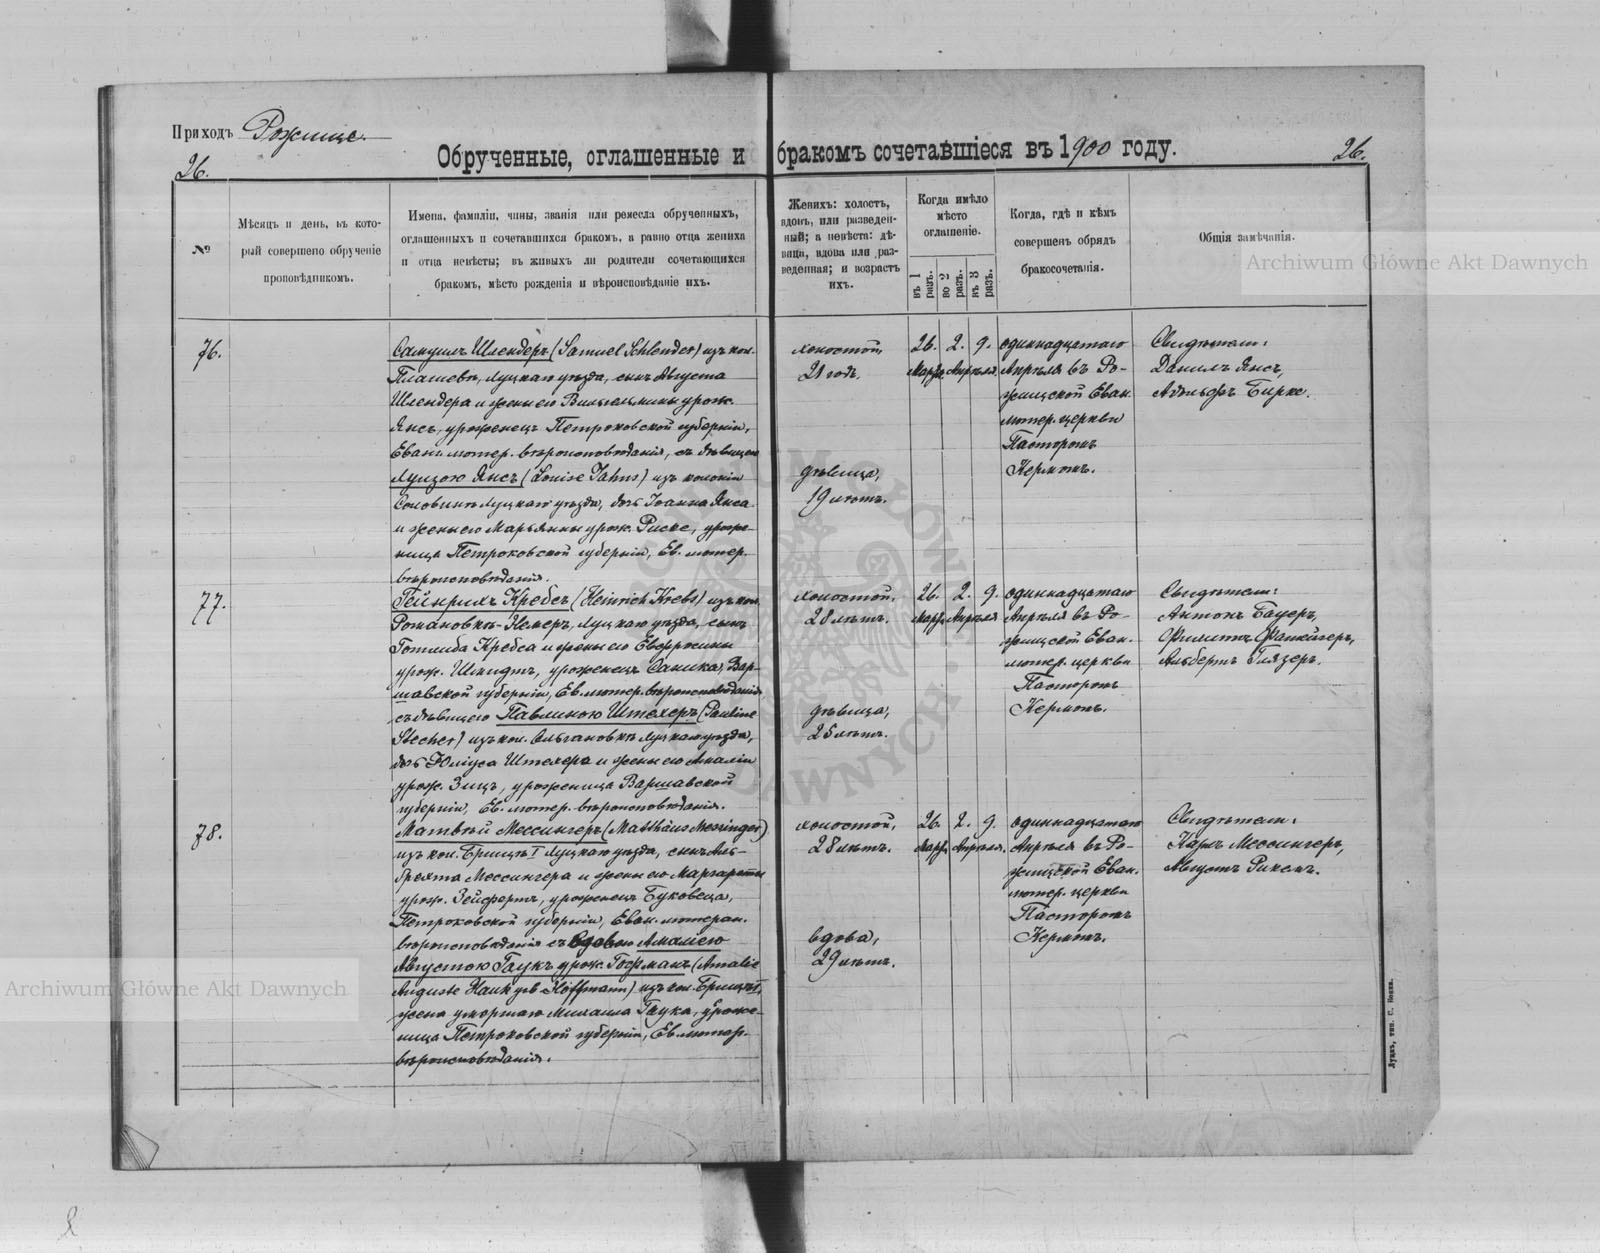 Приходъ Рожище.
26.
Обрученные, оглашенные и бракомъ сочетавшіеся въ 1900 году.
26.
№
Мѣсяцъ и день, въ кото-
рый совершено обрученіе
проповѣдникомъ.
Имена, фамиліи, чины, званія или ремесла обрученныхъ,
оглашенныхъ и сочетавшихся бракомъ, а равно отца жениха
и отца невѣсты; въ живыхъ ли родители сочетающихся
бракомъ, мѣсто рожденія и вѣроисповѣданіе ихъ.
Женихъ: холостъ,
вдовъ, или разведен-
ный; а невѣста: дѣ-
вица, вдова или раз-
веденная; и возрастъ
ихъ.
Когда имѣло
мѣсто
оглашеніе.
въ 1 разъ.
во 2 разъ.
въ 3 разъ.
Когда, гдѣ и кѣмъ
совершенъ обрядъ
бракосочетанія.
Общія замѣчанія.
Archiwum Główne Akt Dawnych
76.
Самуилъ Шлендеръ (Samuel Schlender) изъ кол.
Плашевъ, Луцкаго уѣзда, сынъ Августа
Шлендера и жены его Вильгельмины урож.
Янсъ, уроженецъ Петроковской губерніи,
Еванг. лютер. вѣроисповѣданія, съ дѣвицею
Луизою Янсъ (Louise Jahns) изъ колоніи
Луцкаго уѣзда, дочь Іоанна Янса
и жены его Марьянны урож. Риске, уроже-
ница Петроковской губерніи, Ев. лютер.
вѣроисповѣданія.
холостой,
21 годъ.
дѣвица,
19 лѣтъ.
26. 2. 9.
Марта Апрѣля.
одиннадцатаго
Апрѣля въ Ро-
жищской Еван.
лютер. церкви
Пасторомъ
Кермомъ.
Свидѣтели:
Данилъ Янсъ,
Адольфъ Бирке.
77.
Гейнрихъ Кребсъ (Heinrich Krebs) изъ кол.
Романовкѣ-Немер, Луцкаго уѣзда, сынъ
Готлиба Кребса и жены его Евфрозины
урож. Шмидтъ, уроженецъ Саника, Вар-
шавской губерніи, Ев. лютер. вѣроисповѣданія
съ дѣвицею Павлиною Штехеръ (Pauline
Stecher) изъ кол. Ольгановкѣ Луцкаго уѣзда,
дочь Юліуса Штехера и жены его Амаліи
урож. Зицъ, уроженица Варшавской
губерніи, Ев. лютер. вѣроисповѣданія.
холостой,
28 лѣтъ.
дѣвица,
25 лѣтъ.
26. 2. 9.
Марта Апрѣля
одиннадцатаго
Апрѣля въ Ро-
жищской Еван.
лютер. церкви
Пасторомъ
Кермомъ.
Свидѣтели:
Антонъ Бауеръ,
Филиппъ Фалкингеръ,
Альбертъ Глязеръ.
78.
Матвѣй Мессингеръ (Matthäus Messinger)
изъ кол. Брищъ I Луцкаго уѣзда, сынъ Аль-
брехта Мессингера и жены его Маргареты
урож. Зейфертъ, уроженецъ Буковеца,
Петроковской губерніи, Еван. лютеран.
вѣроисповѣданія съ вдовою Амаліею
Августою Гаукъ урож. Гофманъ (Amalie
Auguste Hauk geb Hoffmann) изъ кол. Брищъ I,
жена умершаго Михаила Гаука, уроже-
ница Петроковской губерніи, Ев. лютер.
вѣроисповѣданія.
холостой,
28 лѣтъ.
вдова,
29 лѣтъ.
26. 2. 9.
Марта Апрѣля.
одиннадцатаго
Апрѣля въ Ро-
жищской Еван.
лютер. церкви
Пасторомъ
Кермомъ.
Свидѣтели:
Карлъ Мессингеръ,
Августъ Рикемъ.
Archiwum Główne Akt Dawnych
Луцкъ, тип. С. Бокка.